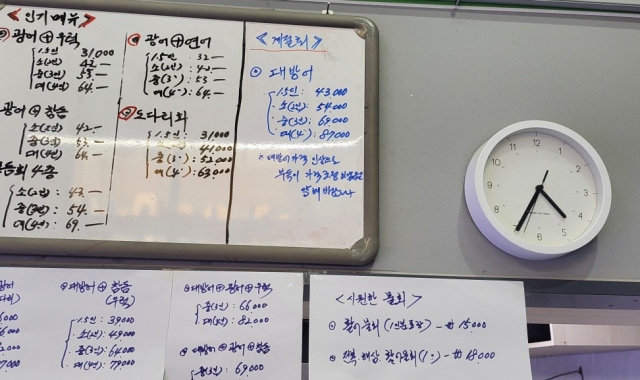 <인기메뉴>
광어⊕우럭
1.5인 31,000
소(2인) 42.—
중(3인) 53.—
대(4인) 64.—
광어⊕참숭
소(2인) 42.—
중(3인) 53.—
대(4인) 64.—
모듬회 4종
소(2인): 43.—
중(3인): 54.—
대(4인): 69.—
광어⊕연어
1.5인: 32—
소(2인): 42.—
중(3"): 53—
대(4"): 64.—
도다리회
1.5인: 31,000
44,000
중(3"): 52,000
대(4"): 63,000
<계절회>
대방어
1.5인: 43,000
소(2인): 54,000
중(3인): 69,000
대(4"): 87,000
* 대방어가격 인상으로
부득이 가격조정
양해바랍니다
12
1
2
3
4
5
6
7
8
9
10
11
대방어⊕참숭
(우럭)
1.5인: 39,000
소(2인): 49,000
중(3인): 64,000
대(4인): 79,000
대방어⊕광어⊕우럭
중(3인): 66,000
대(4인): 82,000
대방어⊕광어⊕참숭
중(3인): 69,000
<시원한 물회>
활어물회(1인분포장) — ₩ 15,000
전복 해삼 활어물회(1") — ₩ 18,000